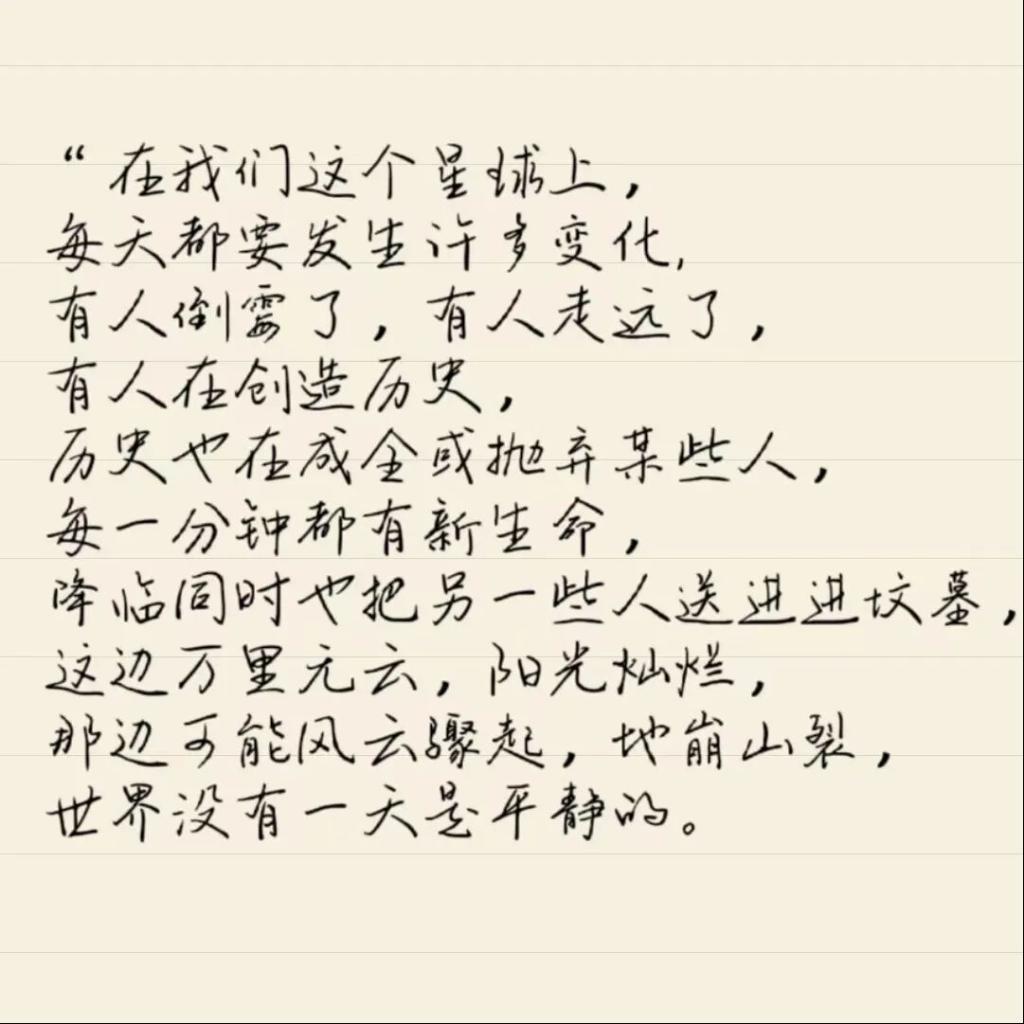 “在我们这个星球上，
每天都要发生许多变化，
有人倒霉了，有人走远了，
有人在创造历史，
历史也在成全或抛弃某些人，
每一分钟都有新生命，
降临同时也把另一些人送进进坟墓，
这边万里无云，阳光灿烂，
那边可能风云骤起，地崩山裂，
世界没有一天是平静的。